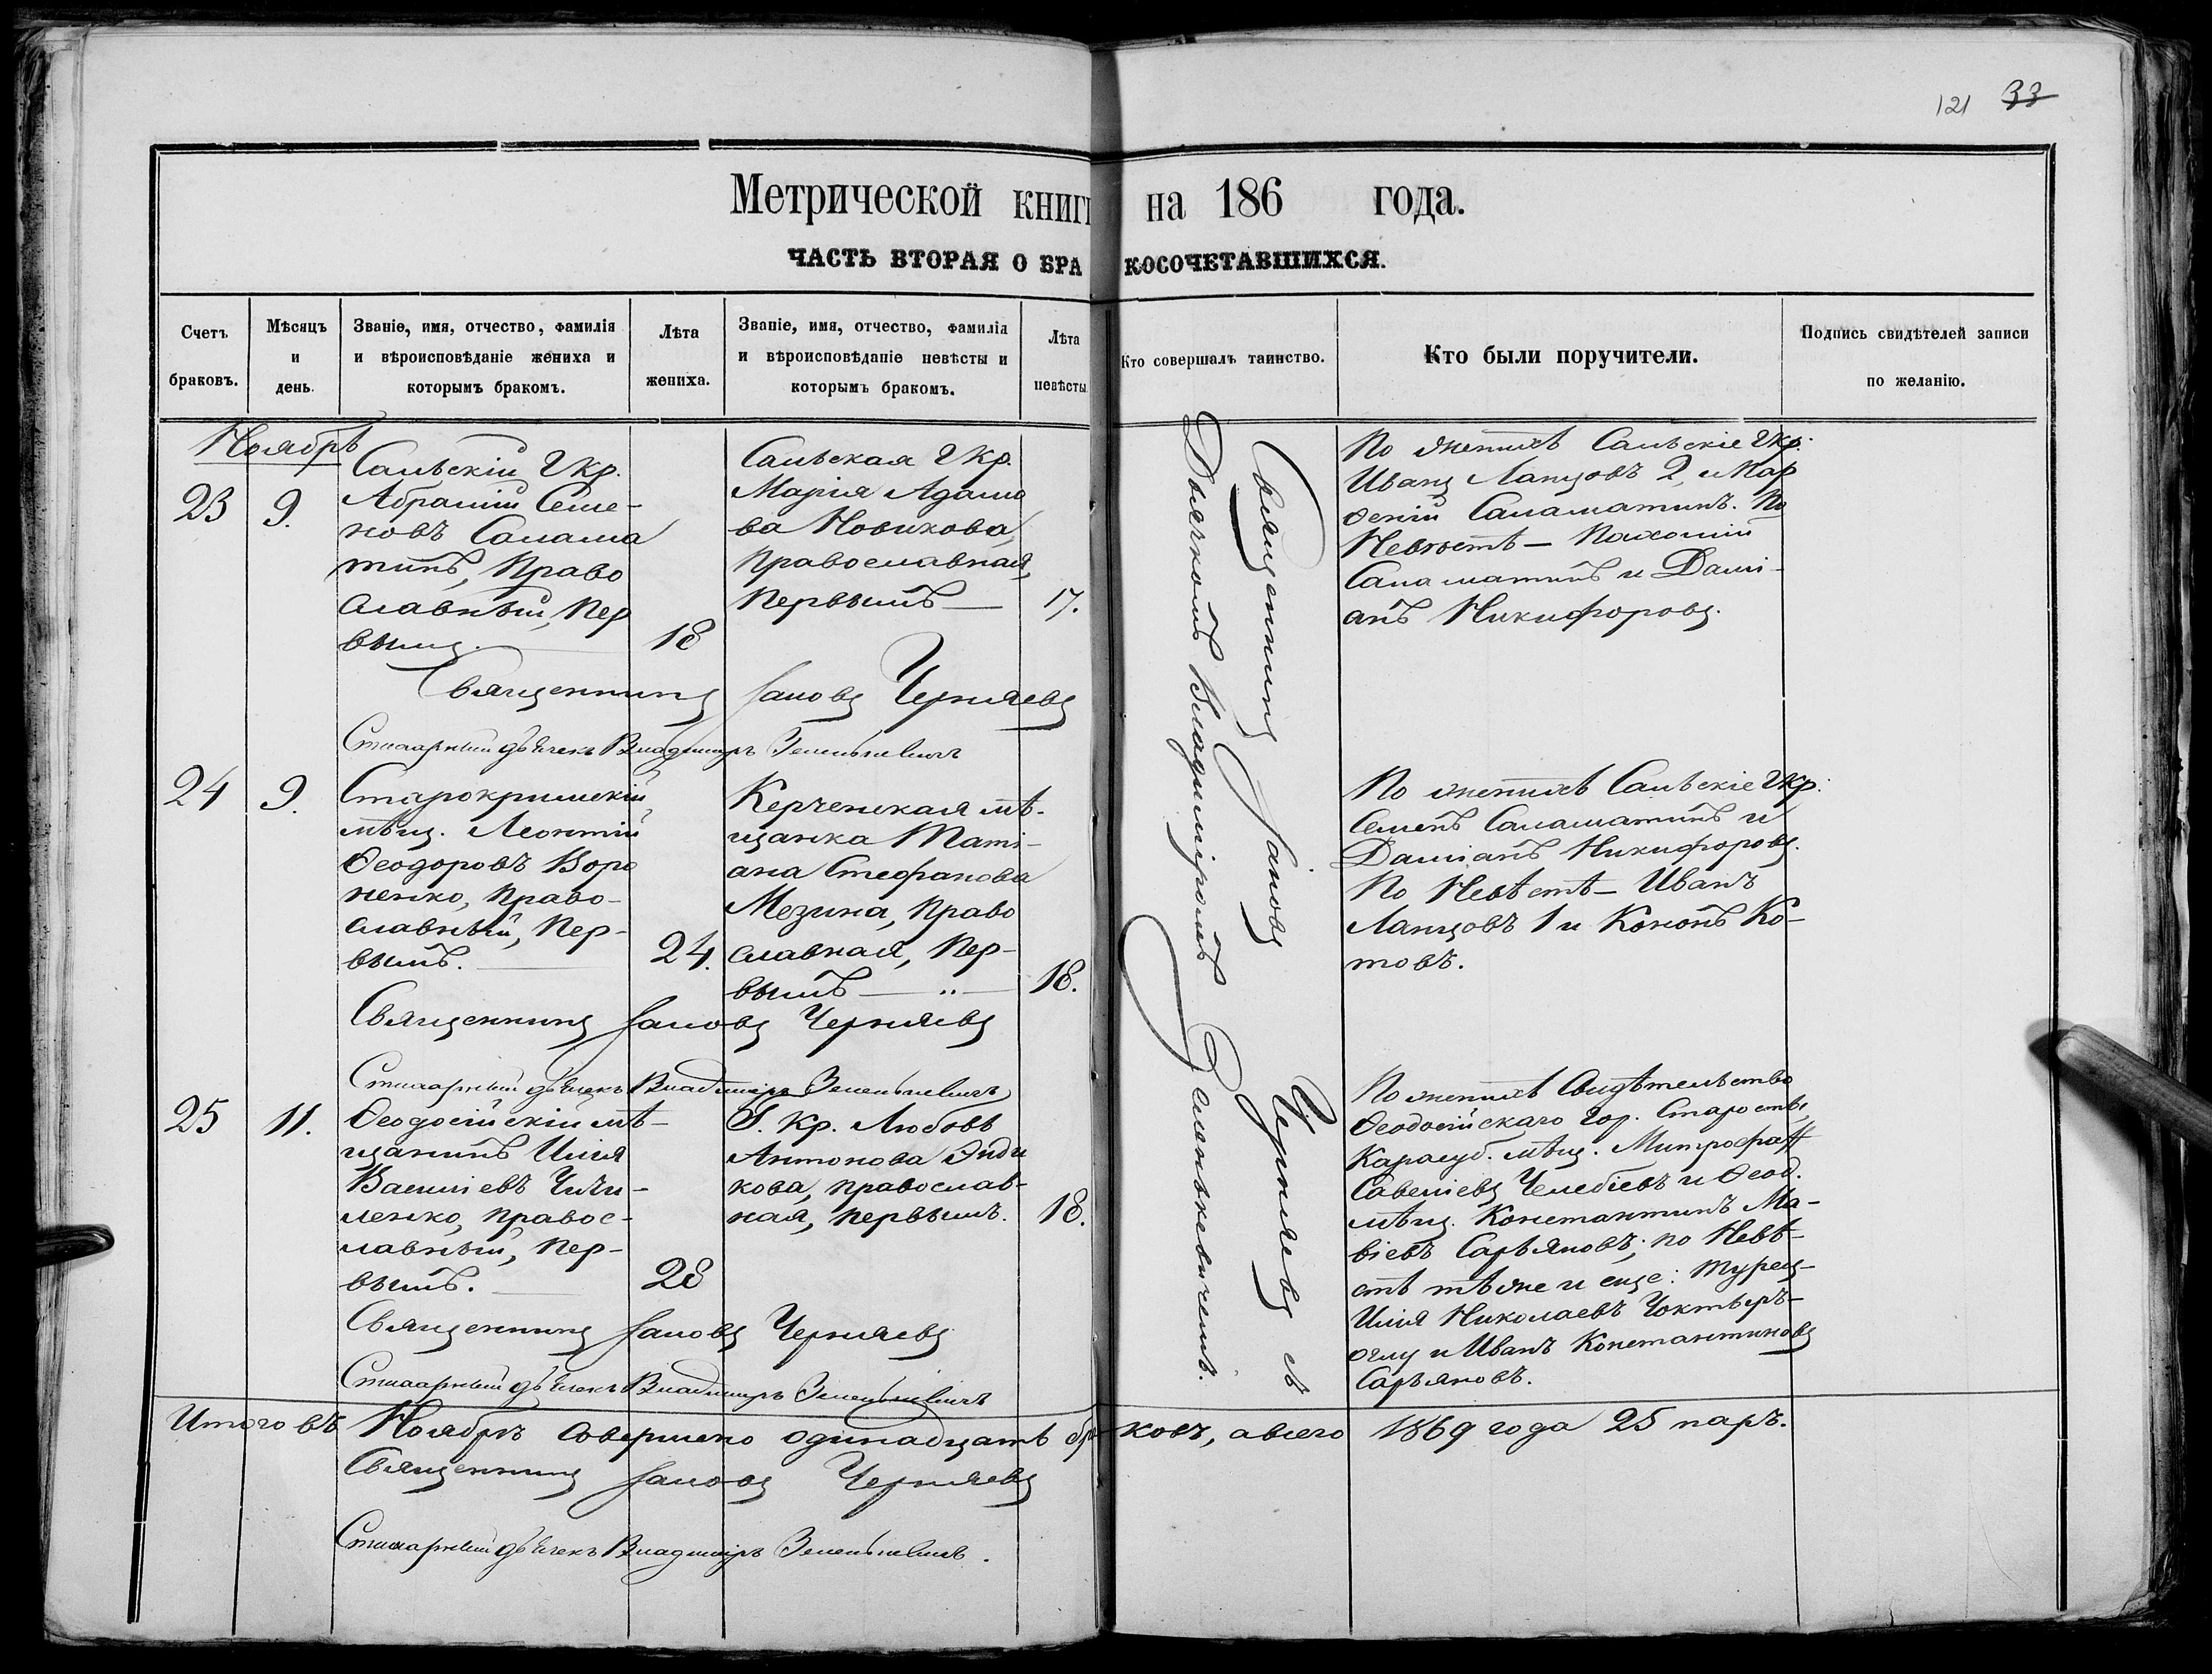 121 33
Метрической книги на 186 года.
ЧАСТЬ ВТОРАЯ О БРАКОСОЧЕТАВШИХСЯ.
Счетъ браковъ.
Мѣсяцъ и день.
Званіе, имя, отчество, фамилія
и вѣроисповѣданіе жениха и
которымъ бракомъ.
Лѣта жениха.
Званіе, имя, отчество, фамилія
и вѣроисповѣданіе невѣсты и
которымъ бракомъ.
Лѣта невѣсты
Кто совершалъ таинство.
Кто были поручители.
Подпись свидѣтелей записи
по желанію.
Ноябрь
23
9.
Сальскій Гкр.
Абрамій Семе-
новъ Салама
тинъ, Право
славный, Пер
вымъ.
18
Сальская Гкр.
Марія Адамо
ва Новикова,
Православная,
Первымъ —
17.
По женихѣ Сальскіе Гкр.
Иванъ Лапцовъ 2, и Мар
дегій Саламатинъ. По
Невѣстѣ — Пахомій
Саламатинъ и Дамі-
анъ Никифоровъ.
Священникъ Іаковъ Черняевъ
Стихарный дьячекъ Владиміръ Зеленькевичъ
24
9.
Старокрымскій
мѣщ. Леонтій
Ѳеодоровъ Воро
ненко, Право-
славный, Пер-
вымъ.
24.
Керченская мѣ-
щанка Таті-
ана Стефанова
Мезина, Право
славная, Пер-
вымъ — " —
18.
По женихѣ Сальскіе Гкр.
Семенъ Саламатинъ и
Даміанъ Никифоровъ.
По Невѣстѣ — Иванъ
Лапцовъ 1 и Кононъ Ко-
товъ.
Священникъ Іаковъ Черняевъ
Стихарный дьячекъ Владиміръ Зеленькевичъ
25
11.
Ѳеодосійскій мѣ-
щанинъ Илія
Васильевъ Чичи-
ленко, правос-
лавный, Пер-
вымъ.
28
Г. Кр. Любовь
Антонова Энди
кова, православ-
ная, первымъ.
18.
По женихѣ Свидѣтельство
Ѳеодосійскаго Гор. Старосты,
Карасуб. мѣщ. Митрофанъ
Савеліевъ Челебіевъ и Ѳеод.
мѣщ. Константинъ Ма-
віевъ Сарьяновъ; по Невѣ-
стѣ тѣже и еще: Турец.
Илія Николаевъ Чоктыръ-
оглу и Иванъ Константиновъ
Сарьяновъ.
Священникъ Іаковъ Черняевъ
Стихарный дьячекъ Владиміръ Зеленькевичъ
Священникъ Іаковъ Черняевъ съ
Дьячкомъ Владиміромъ Зеленькевичемъ.
Итого въ Ноябрѣ совершено одинадцать браковъ, а всего 1869 года 25 паръ.
Священникъ Іаковъ Черняевъ
Стихарный дьячекъ Владиміръ Зеленькевичъ.